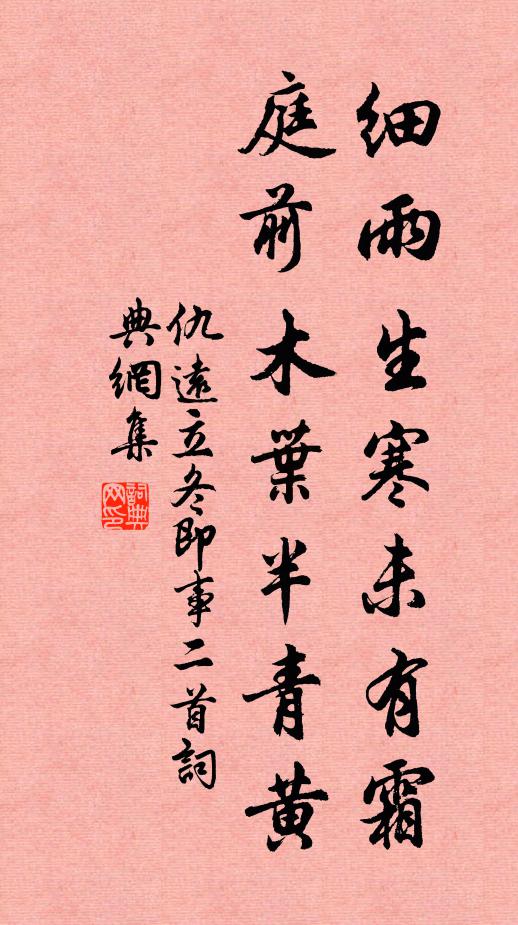 細雨生寒未有霜
庭前木葉半青黄
仇遠立冬即事二首詞
典網集
詞典
网印